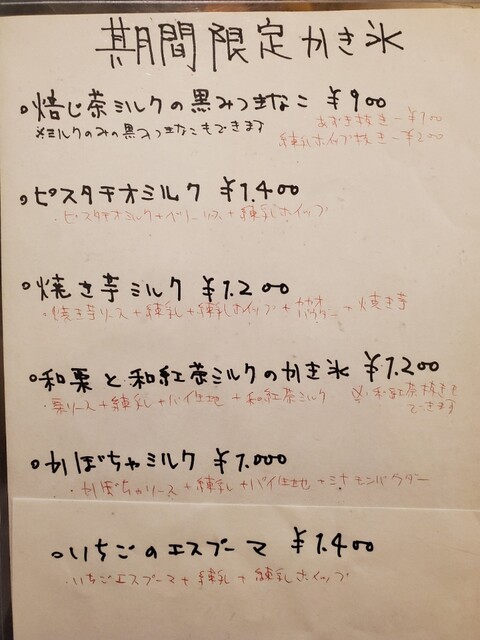 期間限定かき氷
。焙じ茶ミルクの黒みつきなこ ¥900
※ミルクのみの黒みつきなこもできます
あずき抜き-¥100
練乳ホイップ抜き-¥200
。ピスタチオミルク ¥1.400
・ピスタチオミルク+ベリーソース+練乳ホイップ
。焼き芋ミルク ¥1.200
・焼き芋ソース+練乳+練乳ホイップ+カカオパウダー+焼き芋
。和栗と和紅茶ミルクのかき氷 ¥1.200
・栗ソース+練乳+パイ生地+和紅茶ミルク ※和紅茶抜きもできます
。かぼちゃミルク ¥1.000
・かぼちゃソース+練乳+パイ生地+シナモンパウダー
。いちごのエスプーマ ¥1.400
・いちごエスプーマ+練乳+練乳ホイップ